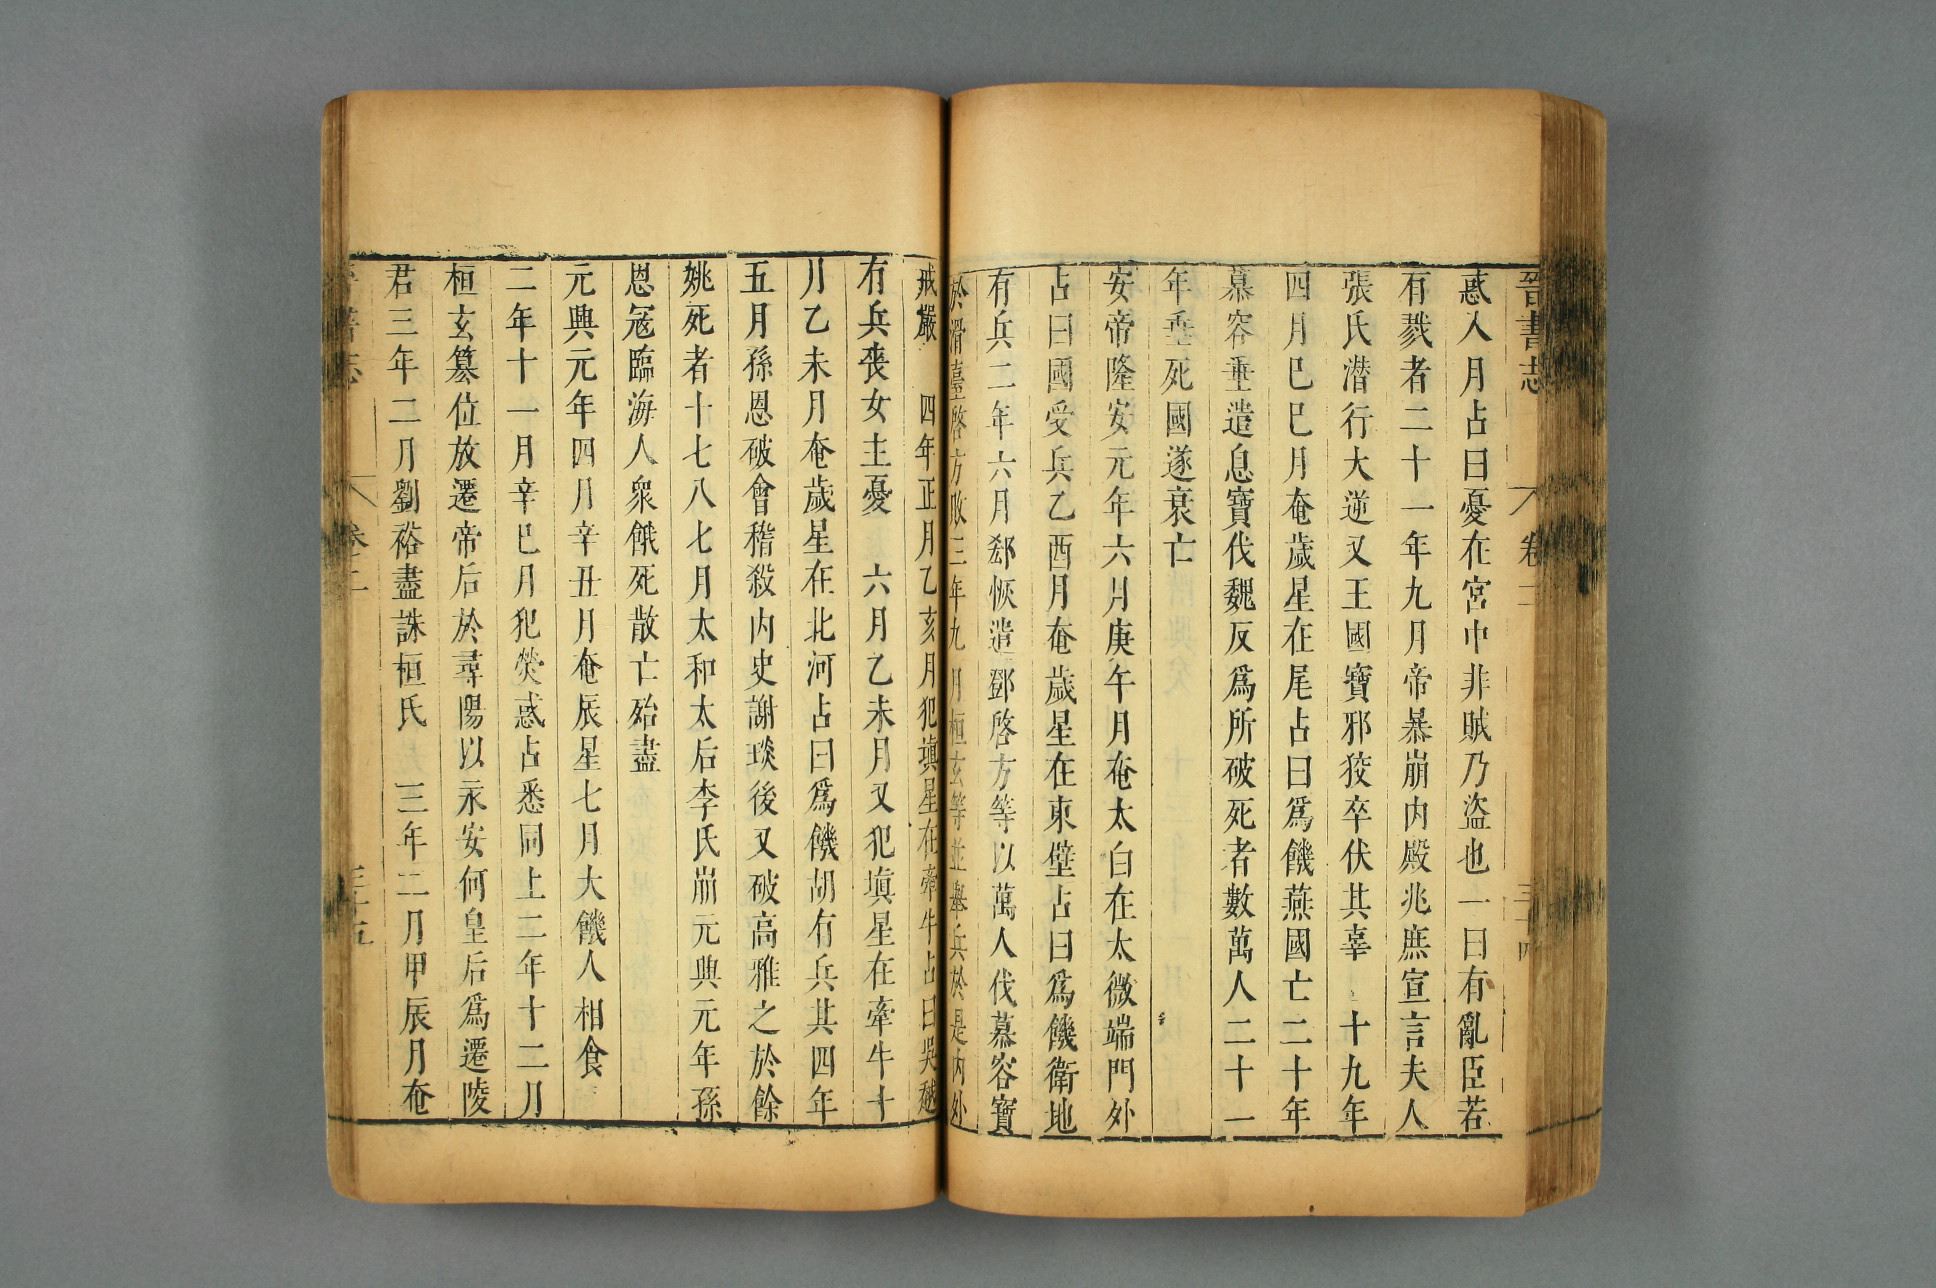 晉書志 卷十二 三十四
惑入月占曰憂在宮中非賊乃盜也一曰有亂臣若
有戮者二十一年九月帝暴崩內殿兆庶宣言夫人
張氏潛行大逆又王國寶邪狡卒伏其辜 十九年
四月巳巳月奄歲星在尾占曰爲饑燕國亡二十年
慕容垂遣息寶伐魏反爲所破死者數萬人二十一
年垂死國遂衰亡
安帝隆安元年六月庚午月奄太白在太微端門外
占曰國受兵乙酉月奄歲星在東壁占曰爲饑衛地
有兵二年六月郄恢遣鄧啓方等以萬人伐慕容寶
於滑臺啓方敗三年九月桓玄等並舉兵於是內外
戒嚴 四年正月乙亥月犯塡星在牽牛占曰吳越
有兵喪女主憂 六月乙未月又犯塡星在牽牛十
月乙未月奄歲星在北河占曰爲饑胡有兵其四年
五月孫恩破會稽殺內史謝琰後又破高雅之於餘
姚死者十七八七月太和太后李氏崩元興元年孫
恩寇臨海人衆餓死散亡殆盡
元興元年四月辛丑月奄辰星七月大饑人相食
二年十一月辛巳月犯熒惑占悉同上二年十二月
桓玄簒位放遷帝后於尋陽以永安何皇后爲遷陵
君三年二月劉裕盡誅桓氏 三年二月甲辰月奄
晉書志 卷十二 三十五